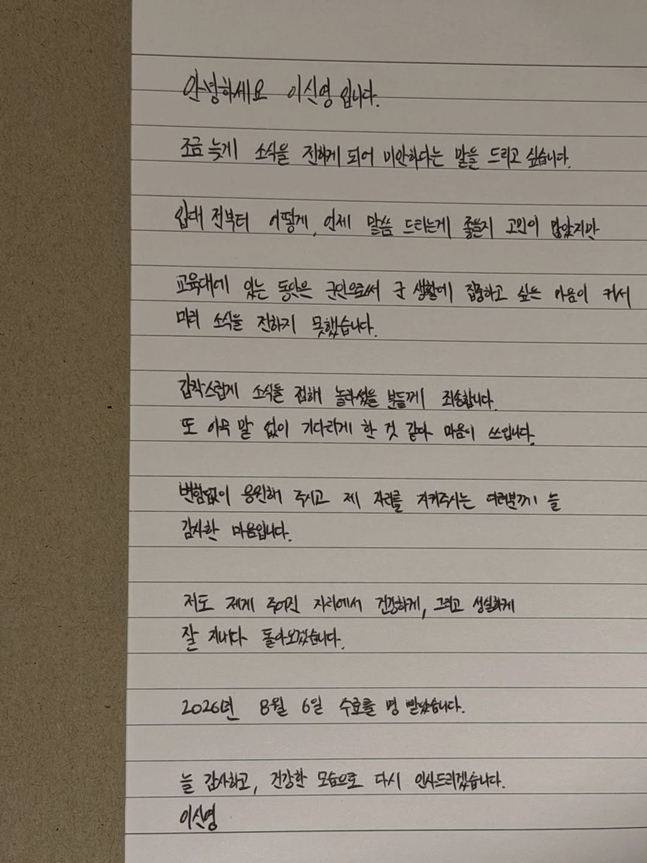 안녕하세요 이신영입니다.
조금 늦게 소식을 전하게 되어 미안하다는 말을 드리고 싶습니다.
입대 전부터 어떻게, 언제 말씀 드리는게 좋을지 고민이 많았지만
교육대에 있는 동안은 군인으로써 군 생활에 집중하고 싶은 마음이 커서
미리 소식을 전하지 못했습니다.
갑작스럽게 소식을 접해 놀라셨을 분들께 죄송합니다.
또 아무 말 없이 기다리게 한 것 같아 마음이 쓰입니다.
변함없이 응원해 주시고 제 자리를 지켜주시는 여러분께 늘
감사한 마음입니다.
저도 제게 주어진 자리에서 건강하게, 그리고 성실하게
잘 지내다 돌아오겠습니다.
2026년 8월 6일 수료를 명 받았습니다.
늘 감사하고, 건강한 모습으로 다시 인사드리겠습니다.
이신영